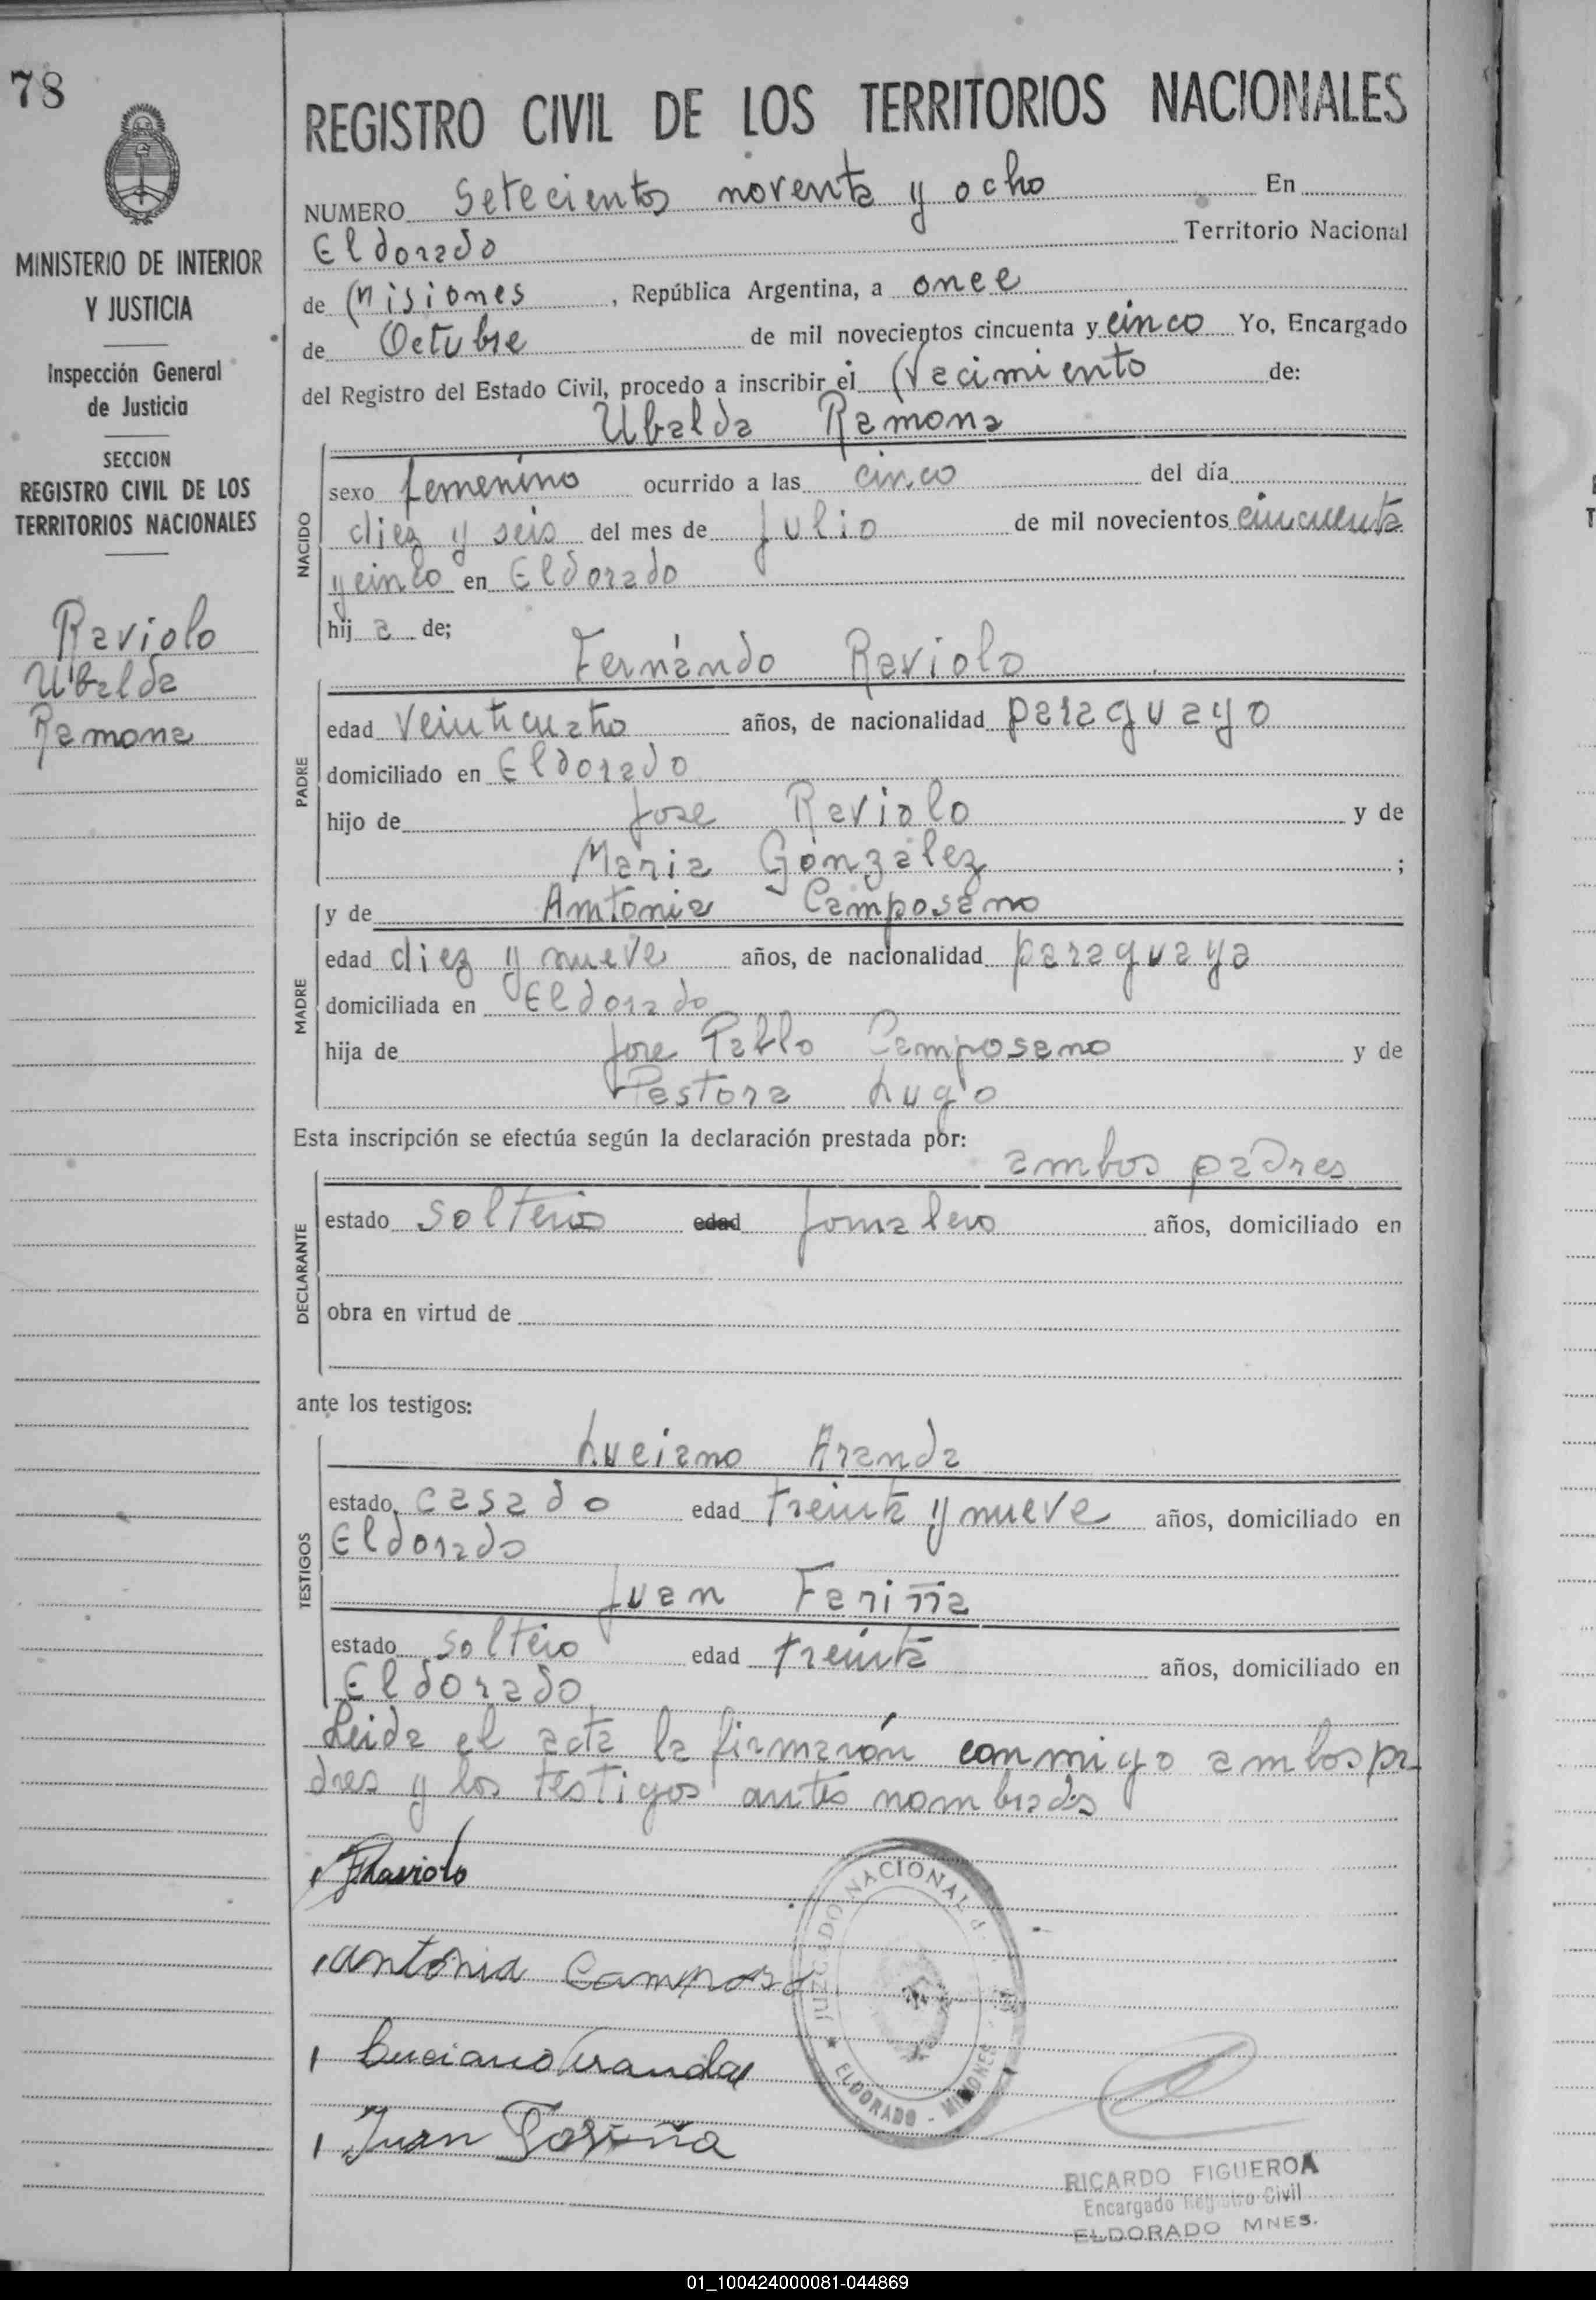 78
MINISTERIO DE INTERIOR
Y JUSTICIA
Inspección General
de Justicia
SECCION
REGISTRO CIVIL DE LOS
TERRITORIOS NACIONALES
Raviolo
Ubalda
Ramona
REGISTRO CIVIL DE LOS TERRITORIOS NACIONALES
NUMERO Setecientos noventa y ocho En
Eldorado Territorio Nacional
de Misiones, República Argentina, a once
de Octubre de mil novecientos cincuenta y cinco Yo, Encargado
del Registro del Estado Civil, procedo a inscribir el Nacimiento de:
Ubalda Ramona
NACIDO
sexo femenino ocurrido a las cinco del día
diez y seis del mes de Julio de mil novecientos cincuenta
y cinco en Eldorado
hij a de;
Fernándo Raviolo
PADRE
edad veinticuatro años, de nacionalidad paraguayo
domiciliado en Eldorado
hijo de Jose Raviolo y de
Maria González ;
y de Antonia Camposano
MADRE
edad diez y nueve años, de nacionalidad paraguaya
domiciliada en Eldorado
hija de Jose Pablo Camposano y de
Pastora Lugo
Esta inscripción se efectúa según la declaración prestada por:
ambos padres
DECLARANTE
estado soltero edad Jornalero años, domiciliado en
obra en virtud de
ante los testigos:
Luciano Aranda
TESTIGOS
estado casado edad treinta y nueve años, domiciliado en
Eldorado
Juan Fariña
estado soltero edad treinta años, domiciliado en
Eldorado
Leida el acta la firmarón conmigo ambos pa-
dres y los testigos antes nombrados
FRaviolo
Antonia Campos
Luciano Aranda
Juan Fariña
JUZGADO NACIONAL
ELDORADO - MISIONES
RICARDO FIGUEROA
Encargado Registro Civil
ELDORADO MNES.
01_100424000081-044869